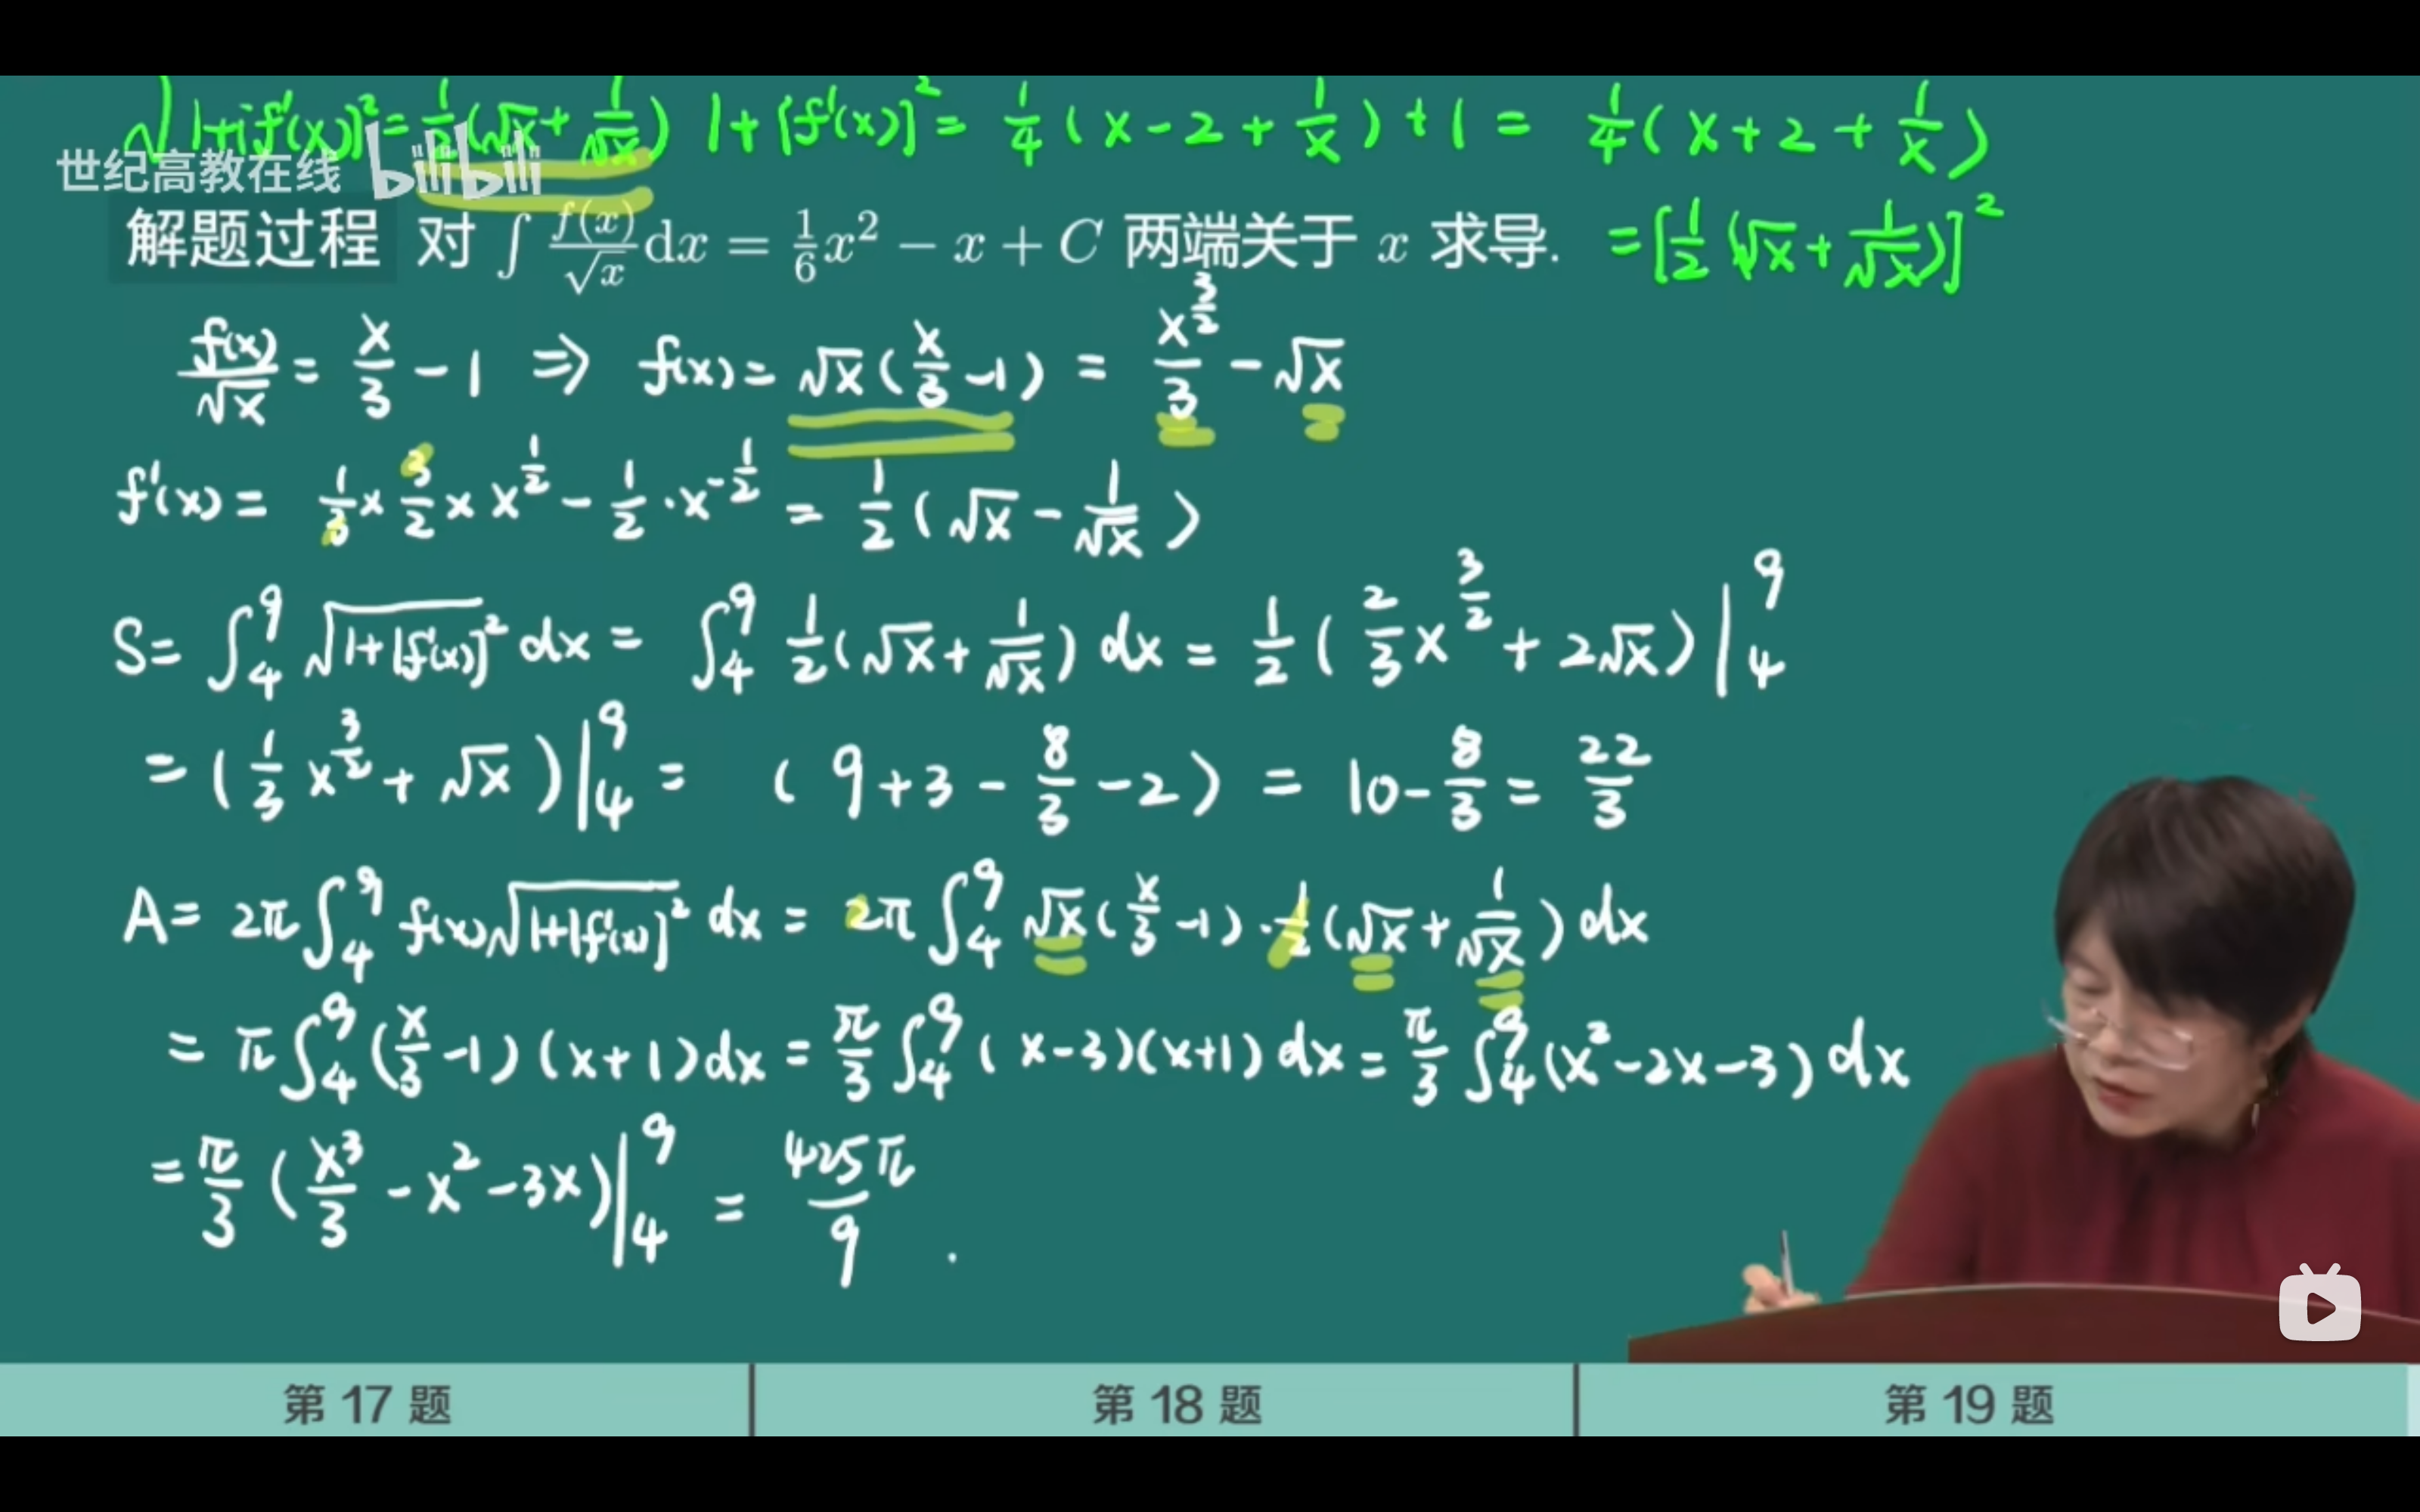 √1+[f'(x)]² = 1/2(√x + 1/√x)  1+[f'(x)]² = 1/4(x-2+1/x)+1 = 1/4(x+2+1/x)
世纪高教在线 bilibili
解题过程 对 ∫ f(x)/√x dx = 1/6 x² − x + C 两端关于 x 求导.  = [1/2(√x + 1/√x)]²
f(x)/√x = x/3 − 1 ⇒ f(x) = √x(x/3 − 1) = x^(3/2)/3 − √x
f'(x) = 1/3 × 3/2 × x^(1/2) − 1/2 · x^(-1/2) = 1/2(√x − 1/√x)
S = ∫₄⁹ √1+[f'(x)]² dx = ∫₄⁹ 1/2(√x + 1/√x) dx = 1/2(2/3 x^(3/2) + 2√x)|₄⁹
= (1/3 x^(3/2) + √x)|₄⁹ = (9+3 − 8/3 − 2) = 10 − 8/3 = 22/3
A = 2π∫₄⁹ f(x)√1+[f'(x)]² dx = 2π∫₄⁹ √x(x/3 − 1) · 1/2(√x + 1/√x) dx
= π∫₄⁹ (x/3 − 1)(x+1) dx = π/3 ∫₄⁹ (x−3)(x+1) dx = π/3 ∫₄⁹ (x² − 2x − 3) dx
= π/3 (x³/3 − x² − 3x)|₄⁹ = 425π/9 .
第 17 题  第 18 题  第 19 题